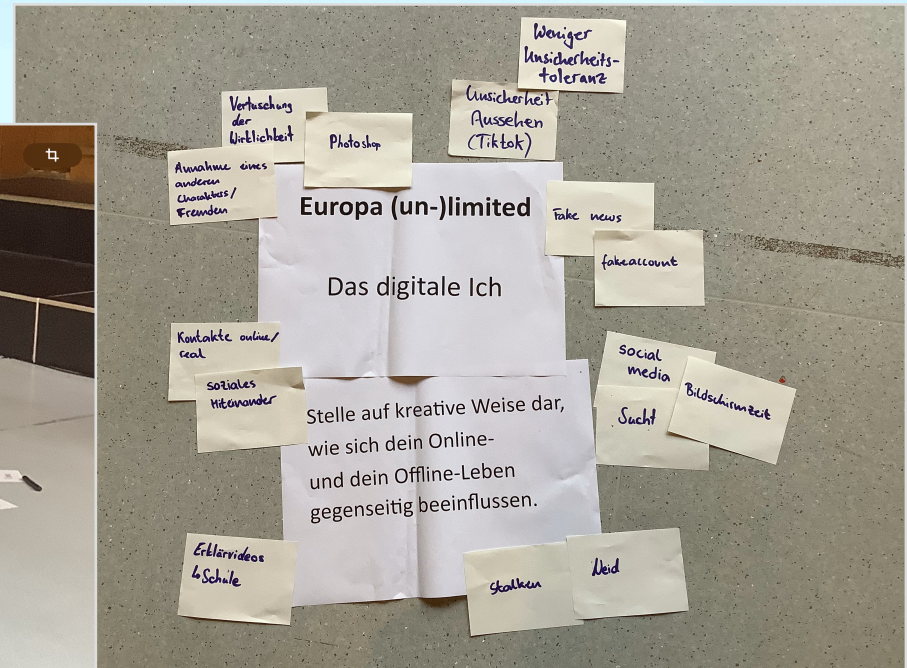 Weniger
Unsicherheits-
toleranz
Unsicherheit
Aussehen
(Tiktok)
Vertuschung
der
Wirklichkeit
Photoshop
Annahme eines
anderen
Charakters/
Fremden
Europa (un-)limited
Das digitale Ich
Fake news
fakeaccount
Kontakte online/
real
soziales
Miteinander
social
media
Sucht
Bildschirmzeit
Stelle auf kreative Weise dar,
wie sich dein Online-
und dein Offline-Leben
gegenseitig beeinflussen.
Erklärvideos
↳ Schule
Stalken
Neid